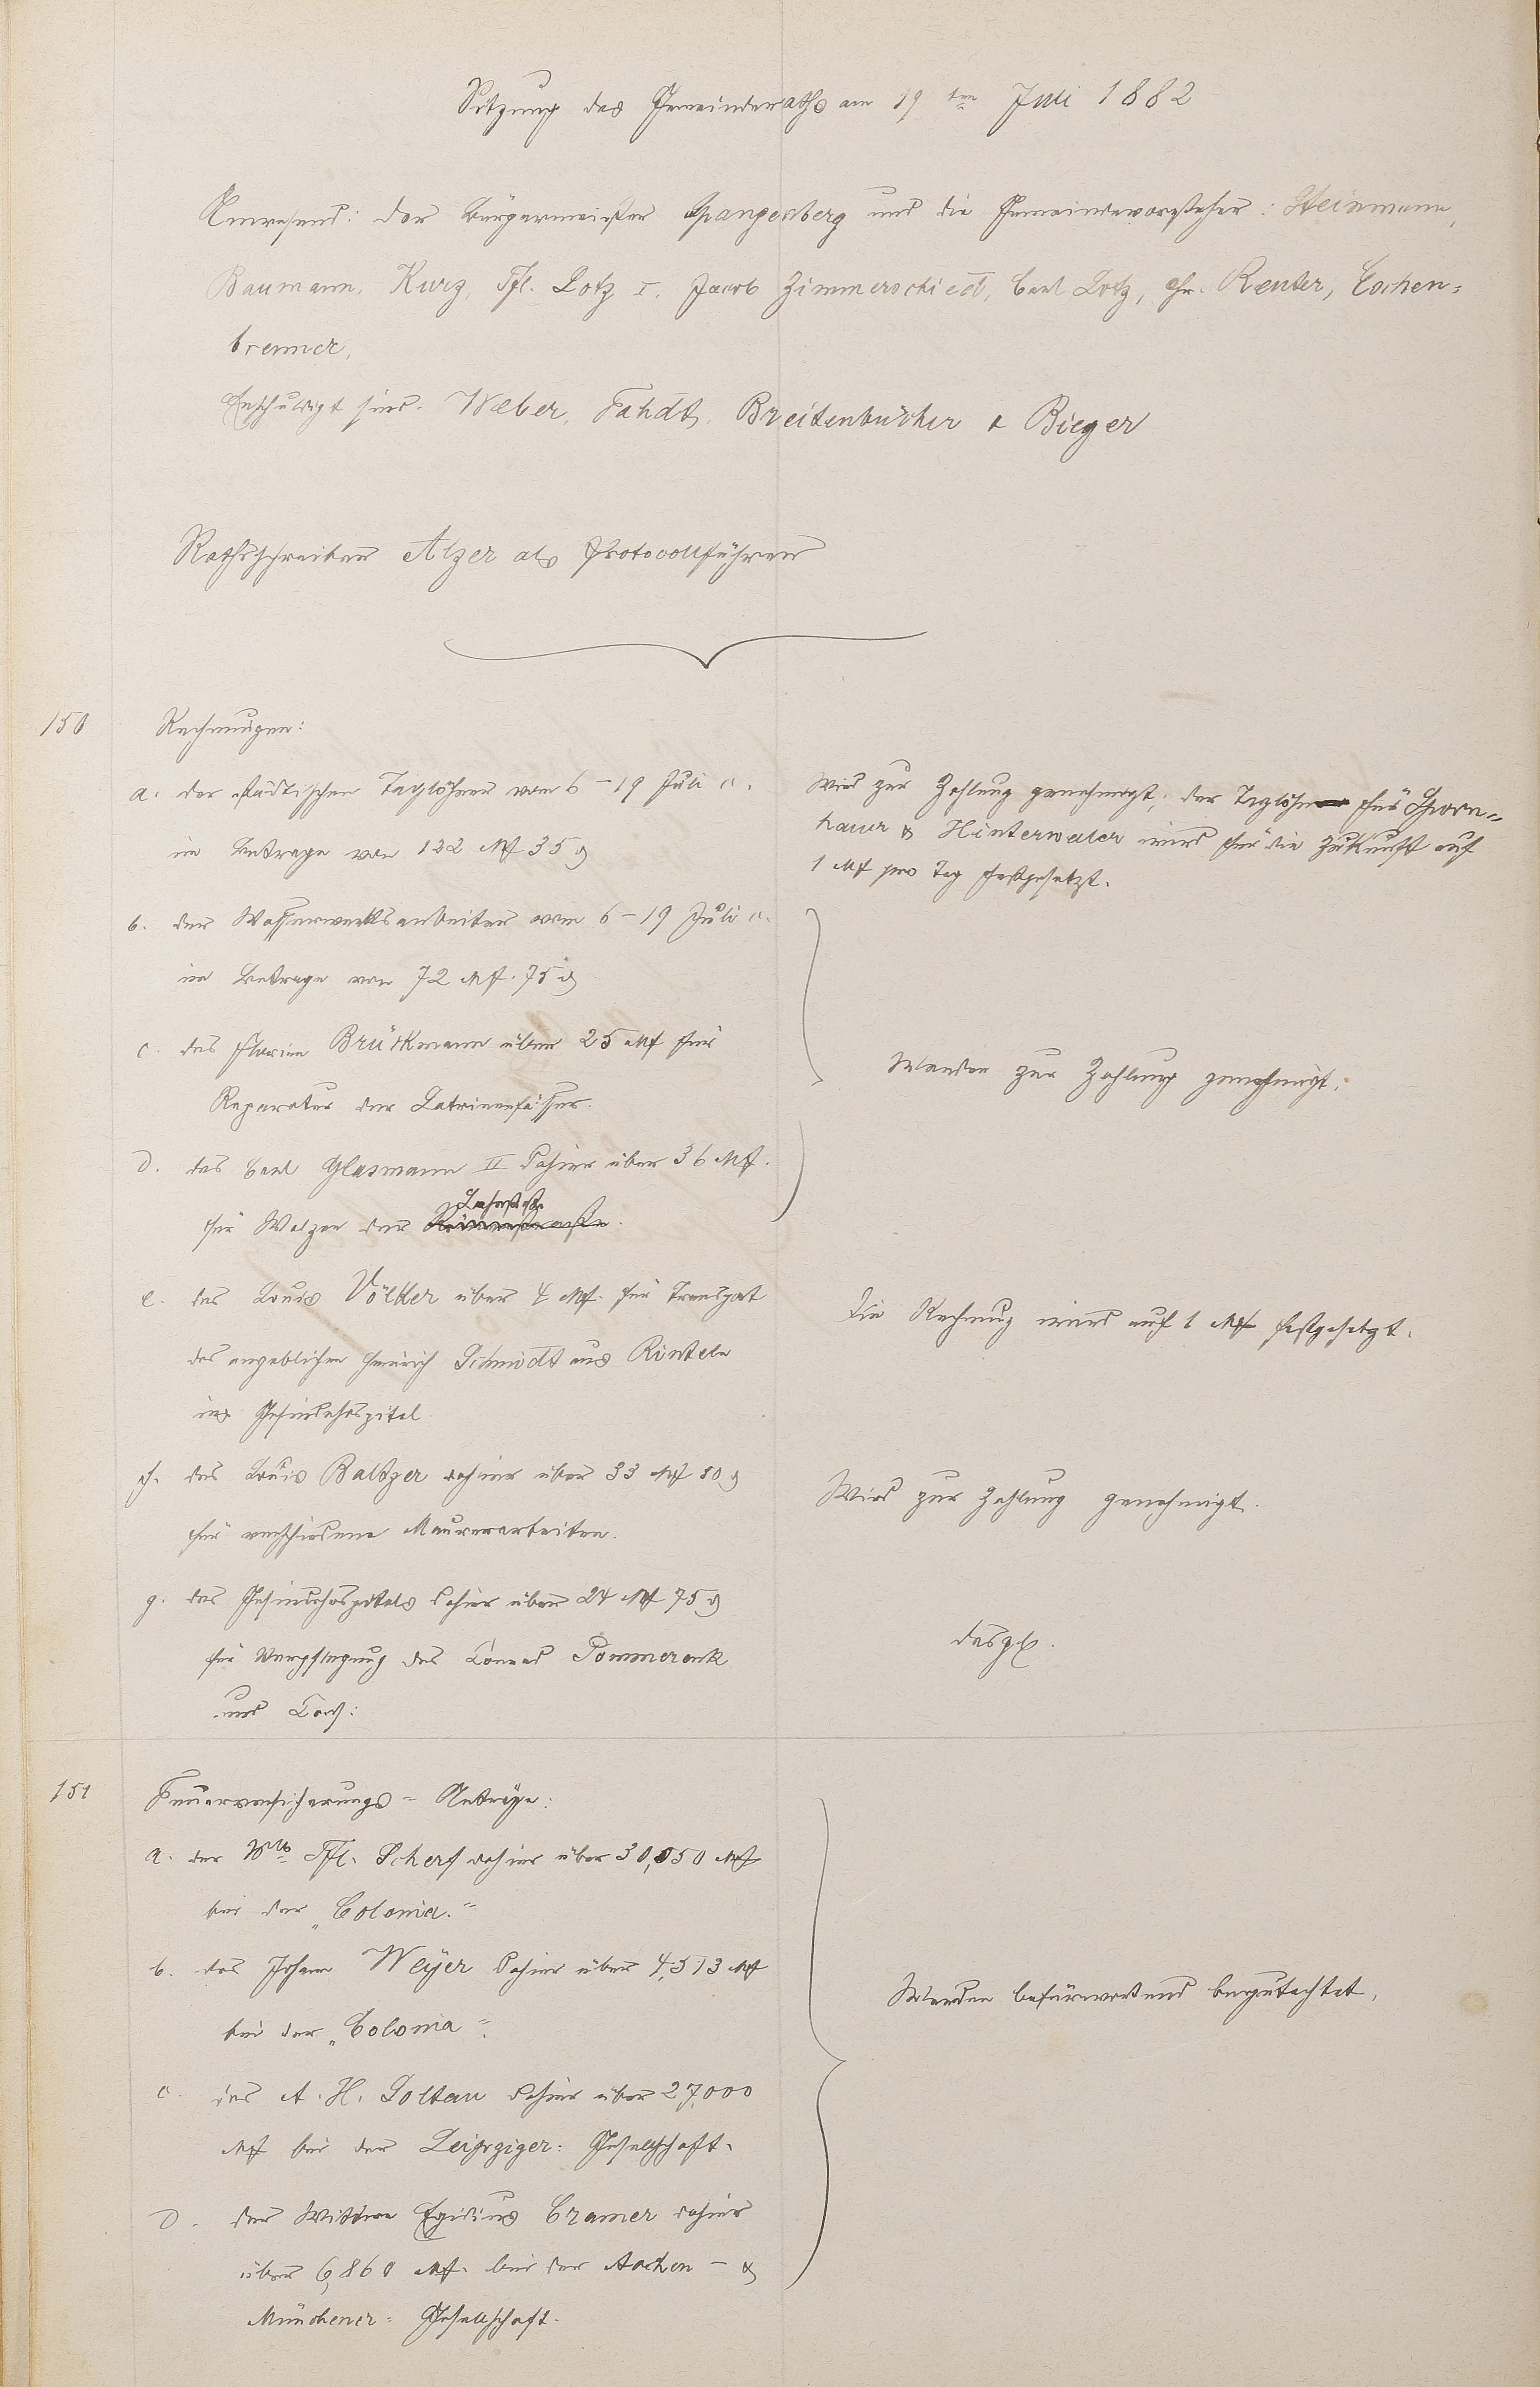 Sitzung des Gemeinderaths am 19ten Juli 1882
Anwesend: Der Bürgermeister Spangenberg und die Gemeindevorsteher: Steinmann,
Baumann, Kurz, Phl. Lotz I, Jacob Zimmerschied, Carl Lotz, Chr. Reuter, Eschen=
brenner,
Entschuldigt sind: Weber, Fahdt, Breitenbücher & Bieger
Rathsschreiber Alzer als Protocollführer
150
Rechnungen:
a. der städtischen Taglöhner vom 6–19 Juli c.
im Betrage von 122 Mk 35 ₰
Wird zur Zahlung genehmigt; der Taglohn für
hauer & Hinterwäler wird für die Zukunft auf
1 Mk pro Tag festgesetzt.
b. der Wasserwerksarbeiter vom 6–19 Juli c.
im Betrage von 72 Mk. 75 ₰
c. des Florian Brückmann über 25 Mk für
Reparatur der Latrinenfässer.
Werden zur Zahlung genehmigt.
d. des Carl Glasmann II dahier über 36 Mk.
für Walzen der Lahnstrße.
e. des Louis Völker über 4 Mk. für Transport
des angeblichen Heinrich Schmidt aus Rinteln
ins Gesindehospital
Die Rechnung wird auf 1 Mk festgesetzt.
f. des Louis Baltzer dahier über 33 Mk 80 ₰
für verschiedene Maurerarbeiten.
Wird zur Zahlung genehmigt.
g. des Gesindehospitals dahier über 24 Mk 75 ₰
für Verpflegung des Conrad Pommerenk
und Cons:
desgl.
151
Feuerversicherungs=Anträge:
a. der Wwe Phl. Scherf dahier über 30,050 Mk
bei der „Colonia."
b. des Johann Weyer dahier über 4,513 Mk
bei der „Colonia".
Werden befürwortend begutachtet.
c. des A. H. Soltau dahier über 27,000
Mk bei der Leipziger=Gesellschaft.
d. der Wittwe Egidius Cramer dahier
über 6,860 Mk. bei der Aachen – &
Münchener=Gesellschaft.